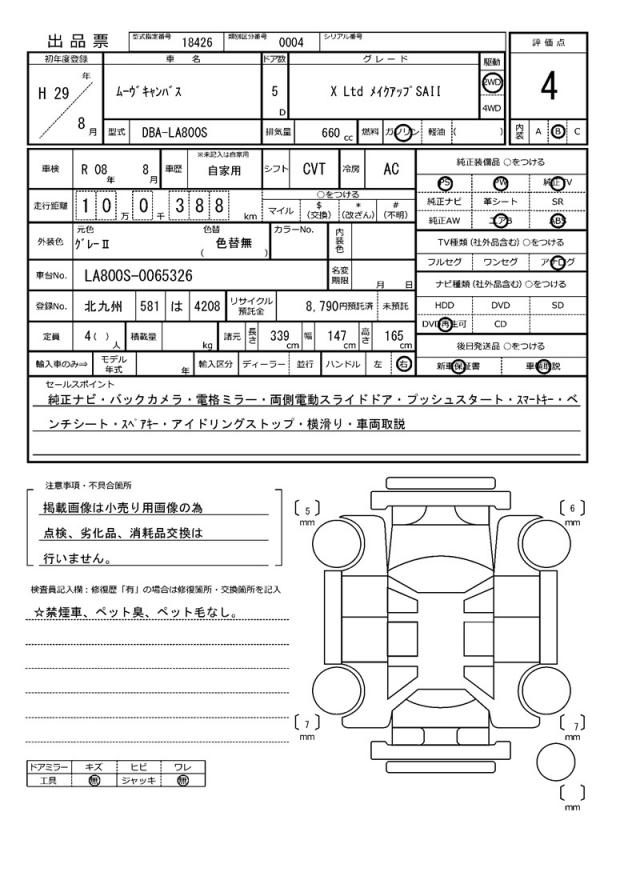 出品票 型式指定番号 18426 類別区分番号 0004 シリアル番号
評価点
4
初年度登録 車名 ドア数 グレード 駆動
H 29 年 8 月
ムーヴキャンバス
5 D
X Ltd メイクアップSAII
2WD
4WD
型式 DBA-LA800S 排気量 660 cc 燃料 ガソリン 軽油 ( )
内装 A B C
車検 R 08 年 8 月 車歴 ※未記入は自家用 自家用 シフト CVT 冷房 AC
走行距離 1 0 万 0 千 3 8 8 km
○をつける
マイル $ (交換) * (改ざん) # (不明)
外装色 元色 グレーII 色替 ( 色替無 ) カラーNo. 内装色
車台No. LA800S-0065326 名変期限 月 日
登録No. 北九州 581 は 4208 リサイクル預託金 8,790円預託済 未預託
定員 4( ) 人 積載量 kg 諸元 長さ 339 cm 幅 147 cm 高さ 165 cm
輸入車のみ⇒ モデル年式 年 輸入区分 ディーラー 並行 ハンドル 左 右
純正装備品 ○をつける
PS PW 純正TV
純正ナビ 革シート SR
純正AW エアB ABS
TV種類 (社外品含む) ○をつける
フルセグ ワンセグ アナログ
ナビ種類 (社外品含む) ○をつける
HDD DVD SD
DVD再生可 CD
後日発送品 ○をつける
新車保証書 車輌取説
セールスポイント
純正ナビ・バックカメラ・電格ミラー・両側電動スライドドア・プッシュスタート・スマートキー・ベ
ンチシート・スペアキー・アイドリングストップ・横滑り・車両取説
注意事項・不具合箇所
掲載画像は小売り用画像の為
点検、劣化品、消耗品交換は
行いません。
検査員記入欄：修復歴「有」の場合は修復箇所・交換箇所を記入
☆禁煙車、ペット臭、ペット毛なし。
〔 5 〕 mm
〔 6 〕 mm
〔 7 〕 mm
〔 7 〕 mm
〔 〕 mm
ドアミラー キズ ヒビ ワレ
工具 無 ジャッキ 無